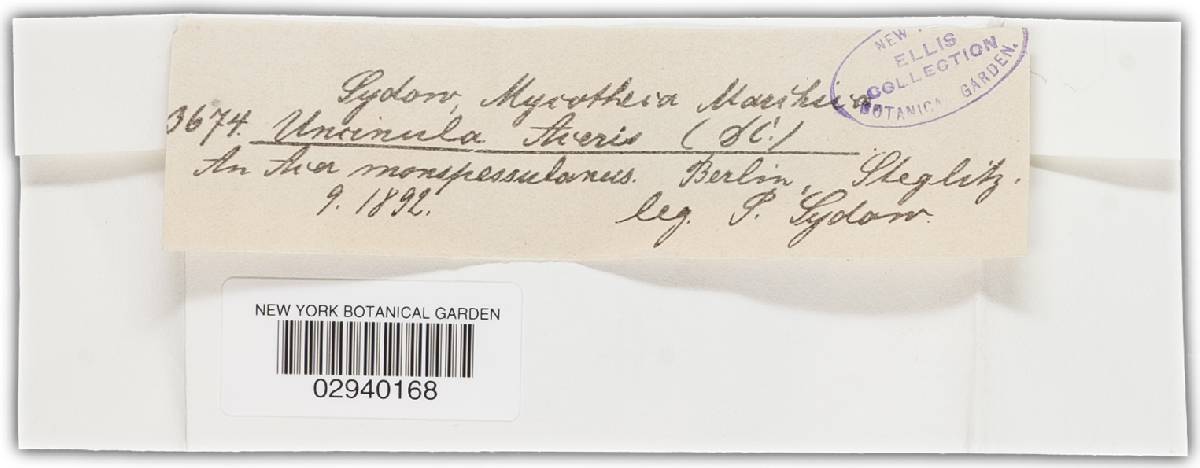 Sydow, Mycotheca Marchica
3674. Uncinula Aceris (DC.)
An Acer monspessulanus. Berlin, Steglitz.
9. 1892. leg. P. Sydow.
NEW
ELLIS
COLLECTION
BOTANICAL GARDEN.
NEW YORK BOTANICAL GARDEN
02940168